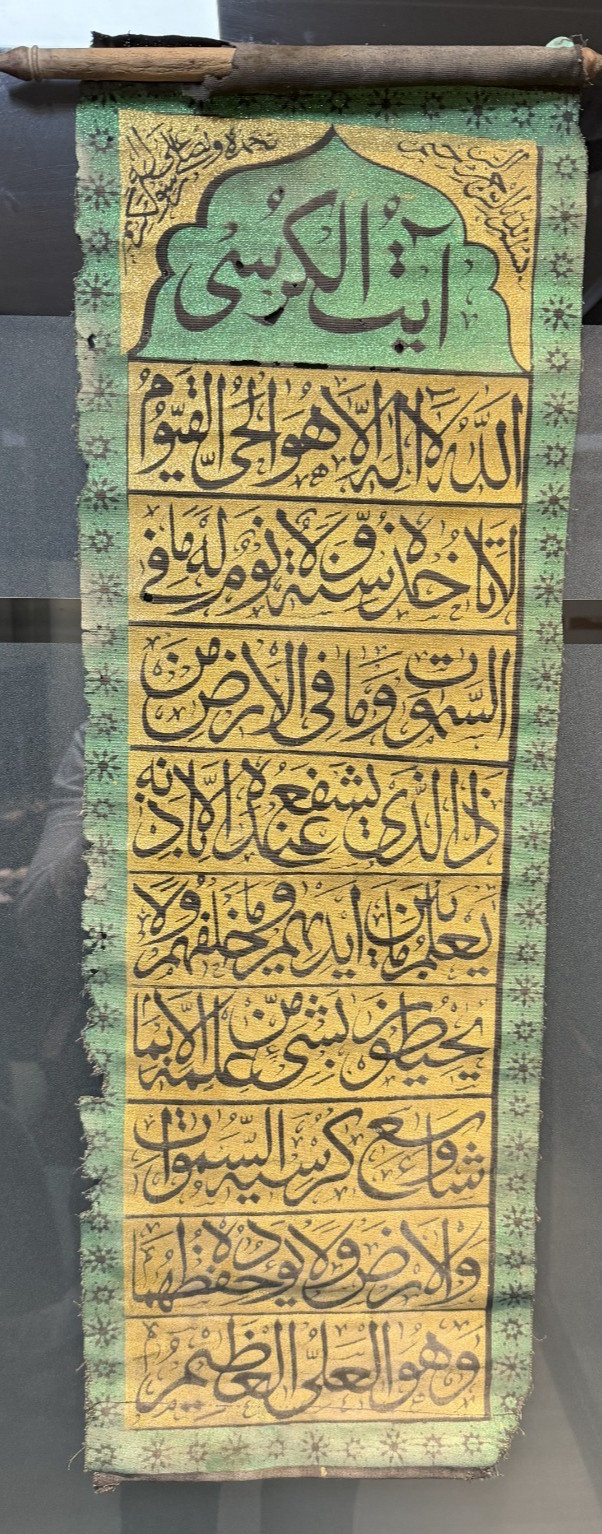 بسم الله الرحمن الرحیم
نحمده ونصلی علی رسوله الکریم
آیت الکرسی
الله لا اله الا هو الحی القیوم
لا تاخذه سنة ولا نوم له ما فی
السموت وما فی الارض من
ذا الذی یشفع عنده الا باذنه
یعلم ما بین ایدیهم وما خلفهم ولا
یحیطون بشیء من علمه الا بما
شاء وسع کرسیه السموات
والارض ولا یوده حفظهما
وهو العلی العظیم